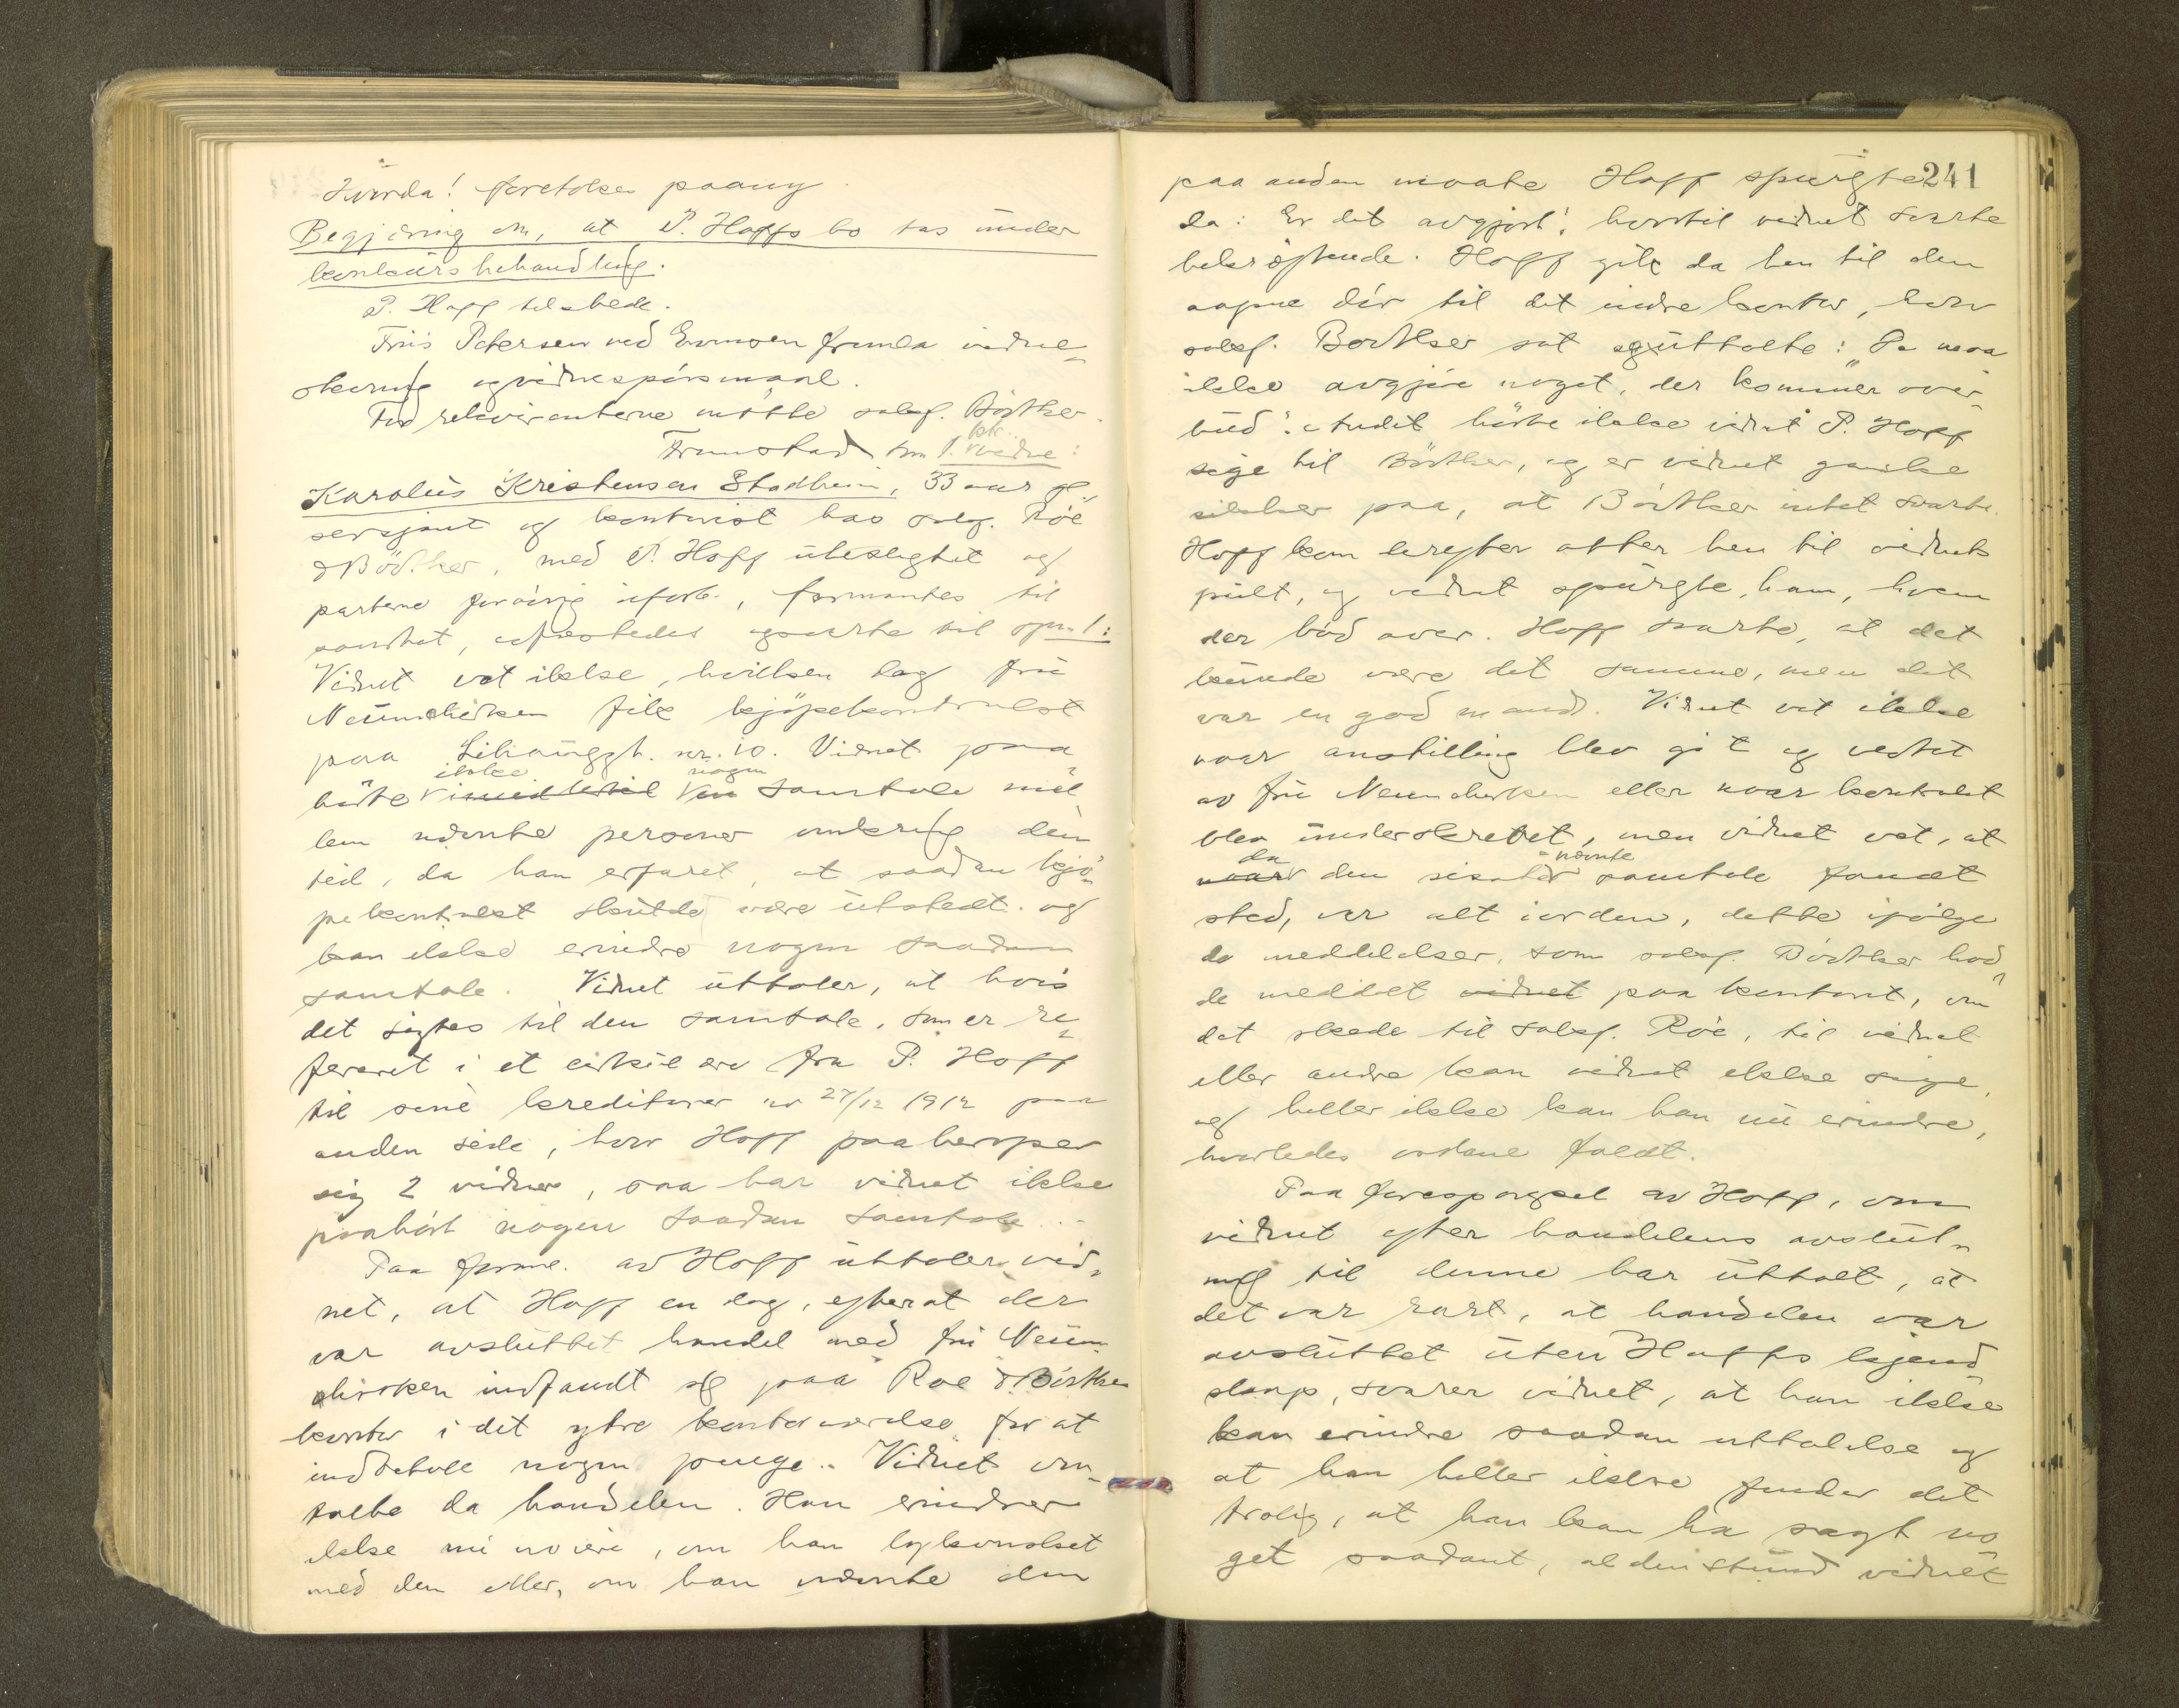 foretokes paany
Begjæring om, at P. Hoffs bo tas under
konkursbehandling.
P. Hoff tilstede.
Friis Petersen ved Evensen fremla vidne-
stevning og vidnespørsmaal.
For rekvirenterne møtte sakf. Bödtker.
Fremstod som 1. vidne:
Karolius Kristensen Stadheim, 33 aar gl.
sersjant og kontorist hos sakf. Roë
& Bödtker, med P. Hoff ubeslegtet og
partene forøvrig uforb., formantes til
sandhet, edfæstedes og svarte til spm 1:
Vidnet vet ikke, hvilken dag fru
Neumcherken fik kjøpekontrakt
paa gt. nr. 10. Vidnet paa-
hørte ikke imidlertid nogen en samtale mel-
lem nævnte personer omkring den
tid, da han erfaret, at saadan kjø-
pekontrakt skulde være utstedt og
kan ikke erindre nogen saadan
samtale. Vidnet uttaler, at hvis
det sigtes til den samtale, som er re-
fereret i et cirkulære fra P. Hoff
til sine kreditorer av 27/12 1912 paa
anden side, hvor Hoff paaberoper
sig 2 vidner, saa har vidnet ikke
paahørt nogen saadan samtale.
Paa foranl. av Hoff uttaler vid-
net, at Hoff en dag, efterat der
var avsluttet handel med fru Neum-
chirken indfandt sig paa Roë & Bödtkers
kontor i det ytre kontorværelse for at
indbetale nogen penge. Vidnet om-
talte da handelen. Han erindrer
ikke nu nøiere, om han lykønsket
med den eller, om han nævnte den
241
paa anden maate Hoff spurgte
da: Er det avgjort! hvortil vidnet svarte
bekræftende. Hoff gik da hen til den
aapne dør til det indre kontor, hvor
sakf. Bödtker sat og uttalte: "De maa
ikke avgjøre noget, der kommer over-
bud". Andet hørte ikke vidnet P. Hoff
sige til Bödtker, og er vidnet ganske
sikker paa, at Bödtker intet svarte.
Hoff kom derefter atter hen til vidnets
pult, og vidnet spurgte ham, hvem
der bød over. Hoff svarte, at det
kunde være det samme, men det
var en god mand. Vidnet vet ikke
naar anstilling blev git og vedtat
av fru Neumcherken eller naar kontrakt
blev underskrevet, men vidnet vet, at
naar da den sisst nævnte samtale fandt
sted, var alt iorden, dette ifølge
de meddelelser, som sakf. Bödtker had-
de meddelt vidnet paa kontoret, om
det skede til sakf. Roë, til vidnet
eller andre kan vidnet ikke sige,
og heller ikke kan han nu erindre,
hvorledes ordene faldt.
Paa forespørgsel av Hoff, om
vidnet efter handelens avslut-
ning til denne har uttalt, at
det var rart, at handelen var
avsluttet uten Hoffs kjend-
skap, svarer vidnet, at han ikke
kan erindre saadan uttalelse og
at han heller ikke finder det
trolig, at han kan ha sagt no
get saadant, al den stund vidnet